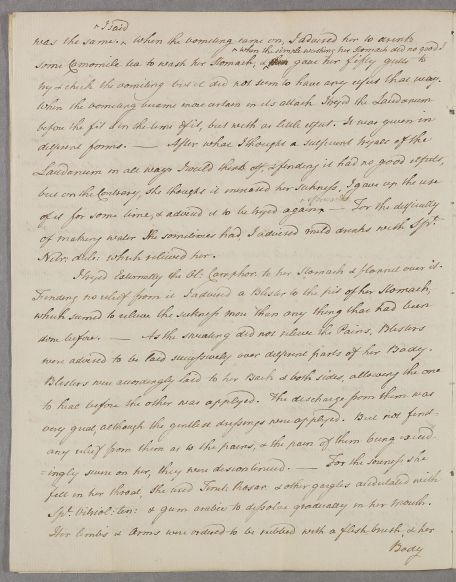 ^ I said
was the same. ^ When the vomiting came on, I advised her to drink
^ when the simple washing her Stomach did no good I
some Camomile tea to wash her Stomach, & ^ gave her fifty gutts to
try & check the vomiting but it did not seem to have any effect that way.
When the vomiting became more certain in its attack I tryed the Laudanum
before the fit & in the time of it, but with as little effect. It was given in
different forms. — After what I thought a sufficient tryal of the
Laudanum in all ways I would think of, & finding it had no good effects,
but on the Contrary, she thought it increased her sickness, I gave up the use
afterwards
of it for some time, & advised it to be tryed again ^ — For the difficulty
of making water She sometimes had, I advised mild drinks with Spt.
Nitr: dulc: which relieved her.
I tryed Externally the Ol: Camphor. to her Stomach & flannel over it.
Finding no relief from it I advised a Blister to the pit of her Stomach,
which seemed to relieve the sickness more than any thing that had been
done before. — As the sweating did not relieve the Pains, Blisters
were advised to be laid successively over different parts of her Body.
Blisters were accordingly laid to her Back & both sides, allowing the one
to heal before the other was applyed. The discharge from them was
very great, although the gentlest dressings were applyed. But not find-
ing any relief from them as to the pains, & the pain of them being exceed-
=ingly severe on her, they were discontinued. — For the soreness she
felt in her throat, She used Tinct: Rosar. & other gargles acidulated with
Spt. Vitriol: ten: & gum arabic to dissolve gradually in her mouth.
Her limbs & Arms were ordered to be rubbed with a flesh brush, & her
Body